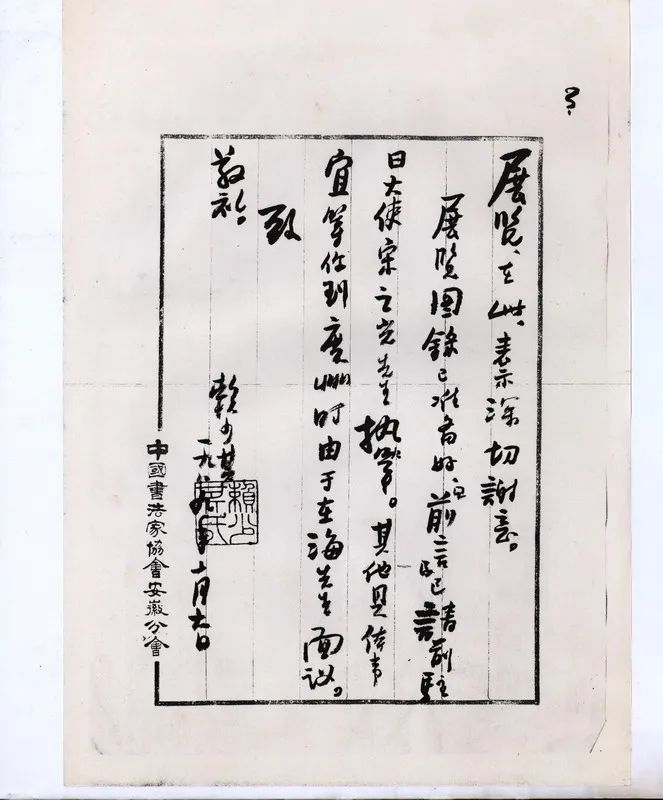 展览,在此表示深切谢意。
展览图录已准备好,前言已请前驻
日大使宋之光先生执笔。其他具体事
宜等你到广州时由于在海先生面议。
致
敬礼。
赖少其
一九八九年十月六日
中國書法家協會安徽分會